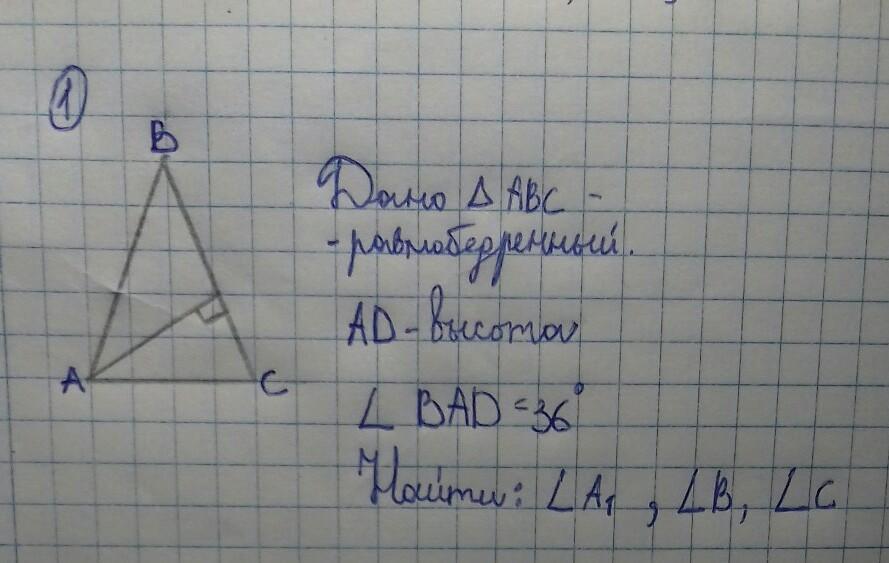 1
B
Дано Δ ABC -
- равнобедренный.
AD - высота
A
C
∠ BAD = 36°
Найти: ∠A, ∠B, ∠C